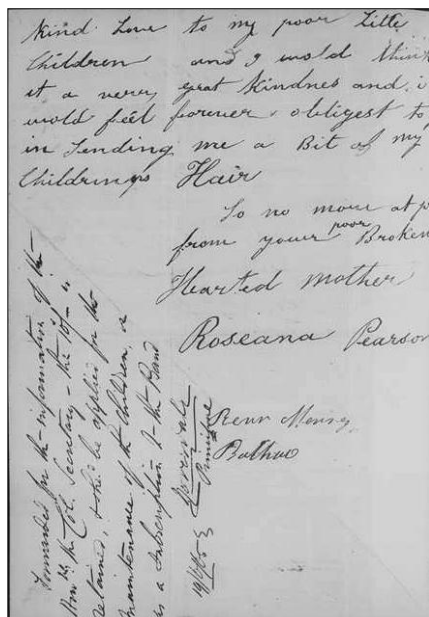 kind Love to my poor Little
Children and I wold think
it a very great kindnes and i
wold feel forever obligest to
in Sending me a Bit of my
Childrings Hair
So no more at p
from your poor Broken
Hearted Mother
Roseana Pearson
Forwarded for the information of the
Hon. the Col. Secretary - the 10/-
retained, to be applied for the
maintenance of the Children, or
as a Subscription to the Band